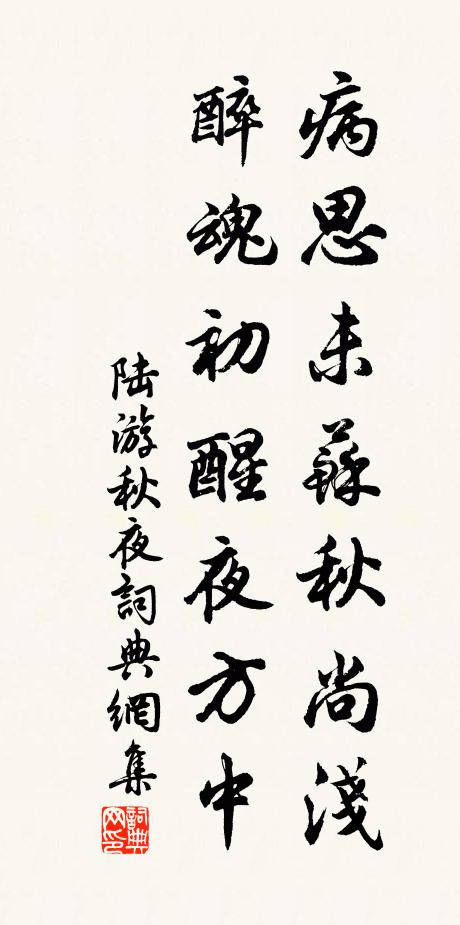 病思未蘇秋尚淺
醉魂初醒夜方中
陆游秋夜詞典網集
詞典网印